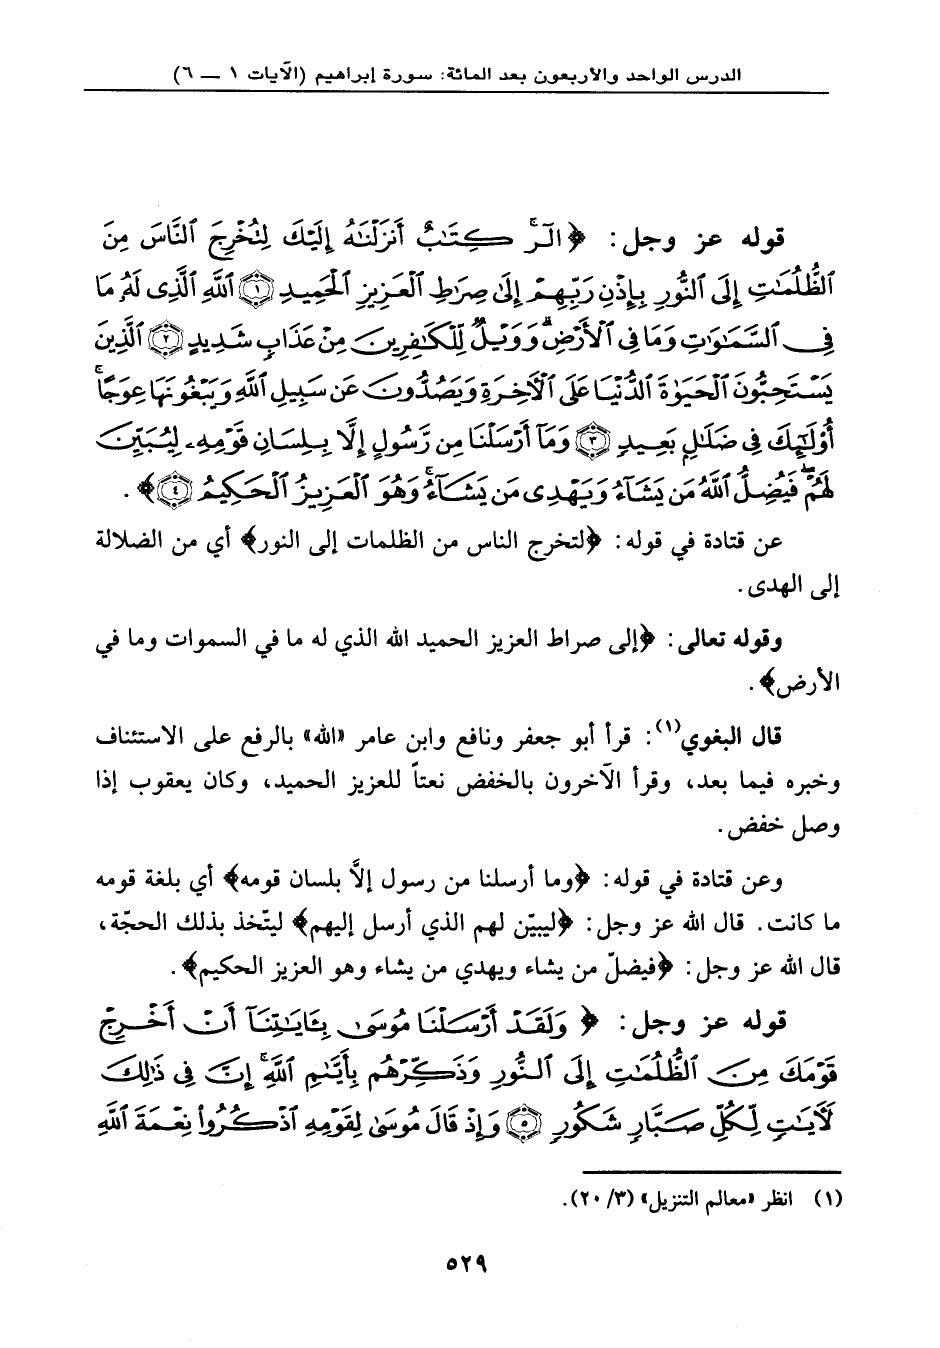 الدرس الواحد والأربعون بعد المائة: سورة إبراهيم (الآيات ١ ـ ٦)
قوله عز وجل: ﴿الٓرۚ كِتَٰبٌ أَنزَلْنَٰهُ إِلَيْكَ لِتُخْرِجَ ٱلنَّاسَ مِنَ
ٱلظُّلُمَٰتِ إِلَى ٱلنُّورِ بِإِذْنِ رَبِّهِمْ إِلَىٰ صِرَٰطِ ٱلْعَزِيزِ ٱلْحَمِيدِ ١ ٱللَّهِ ٱلَّذِى لَهُۥ مَا
فِى ٱلسَّمَٰوَٰتِ وَمَا فِى ٱلْأَرْضِۗ وَوَيْلٌ لِّلْكَٰفِرِينَ مِنْ عَذَابٍ شَدِيدٍ ٢ ٱلَّذِينَ
يَسْتَحِبُّونَ ٱلْحَيَوٰةَ ٱلدُّنْيَا عَلَى ٱلْأٓخِرَةِ وَيَصُدُّونَ عَن سَبِيلِ ٱللَّهِ وَيَبْغُونَهَا عِوَجًاۚ
أُو۟لَٰٓئِكَ فِى ضَلَٰلٍۭ بَعِيدٍ ٣ وَمَآ أَرْسَلْنَا مِن رَّسُولٍ إِلَّا بِلِسَانِ قَوْمِهِۦ لِيُبَيِّنَ
لَهُمْۖ فَيُضِلُّ ٱللَّهُ مَن يَشَآءُ وَيَهْدِى مَن يَشَآءُۚ وَهُوَ ٱلْعَزِيزُ ٱلْحَكِيمُ ٤﴾.
عن قتادة في قوله: ﴿لتخرج الناس من الظلمات إلى النور﴾ أي من الضلالة
إلى الهدى.
وقوله تعالى: ﴿إلى صراط العزيز الحميد الله الذي له ما في السموات وما في
الأرض﴾.
قال البغوي(١): قرأ أبو جعفر ونافع وابن عامر «الله» بالرفع على الاستئناف
وخبره فيما بعد، وقرأ الآخرون بالخفض نعتاً للعزيز الحميد، وكان يعقوب إذا
وصل خفض.
وعن قتادة في قوله: ﴿وما أرسلنا من رسول إلاَّ بلسان قومه﴾ أي بلغة قومه
ما كانت. قال الله عز وجل: ﴿ليبيّن لهم الذي أرسل إليهم﴾ ليتّخذ بذلك الحجّة،
قال الله عز وجل: ﴿فيضلّ من يشاء ويهدي من يشاء وهو العزيز الحكيم﴾.
قوله عز وجل: ﴿وَلَقَدْ أَرْسَلْنَا مُوسَىٰ بِـَٔايَٰتِنَآ أَنْ أَخْرِجْ
قَوْمَكَ مِنَ ٱلظُّلُمَٰتِ إِلَى ٱلنُّورِ وَذَكِّرْهُم بِأَيَّىٰمِ ٱللَّهِۚ إِنَّ فِى ذَٰلِكَ
لَأٓيَٰتٍ لِّكُلِّ صَبَّارٍ شَكُورٍ ٥ وَإِذْ قَالَ مُوسَىٰ لِقَوْمِهِ ٱذْكُرُوا۟ نِعْمَةَ ٱللَّهِ
(١) انظر «معالم التنزيل» (٣/ ٢٠).
٥٢٩